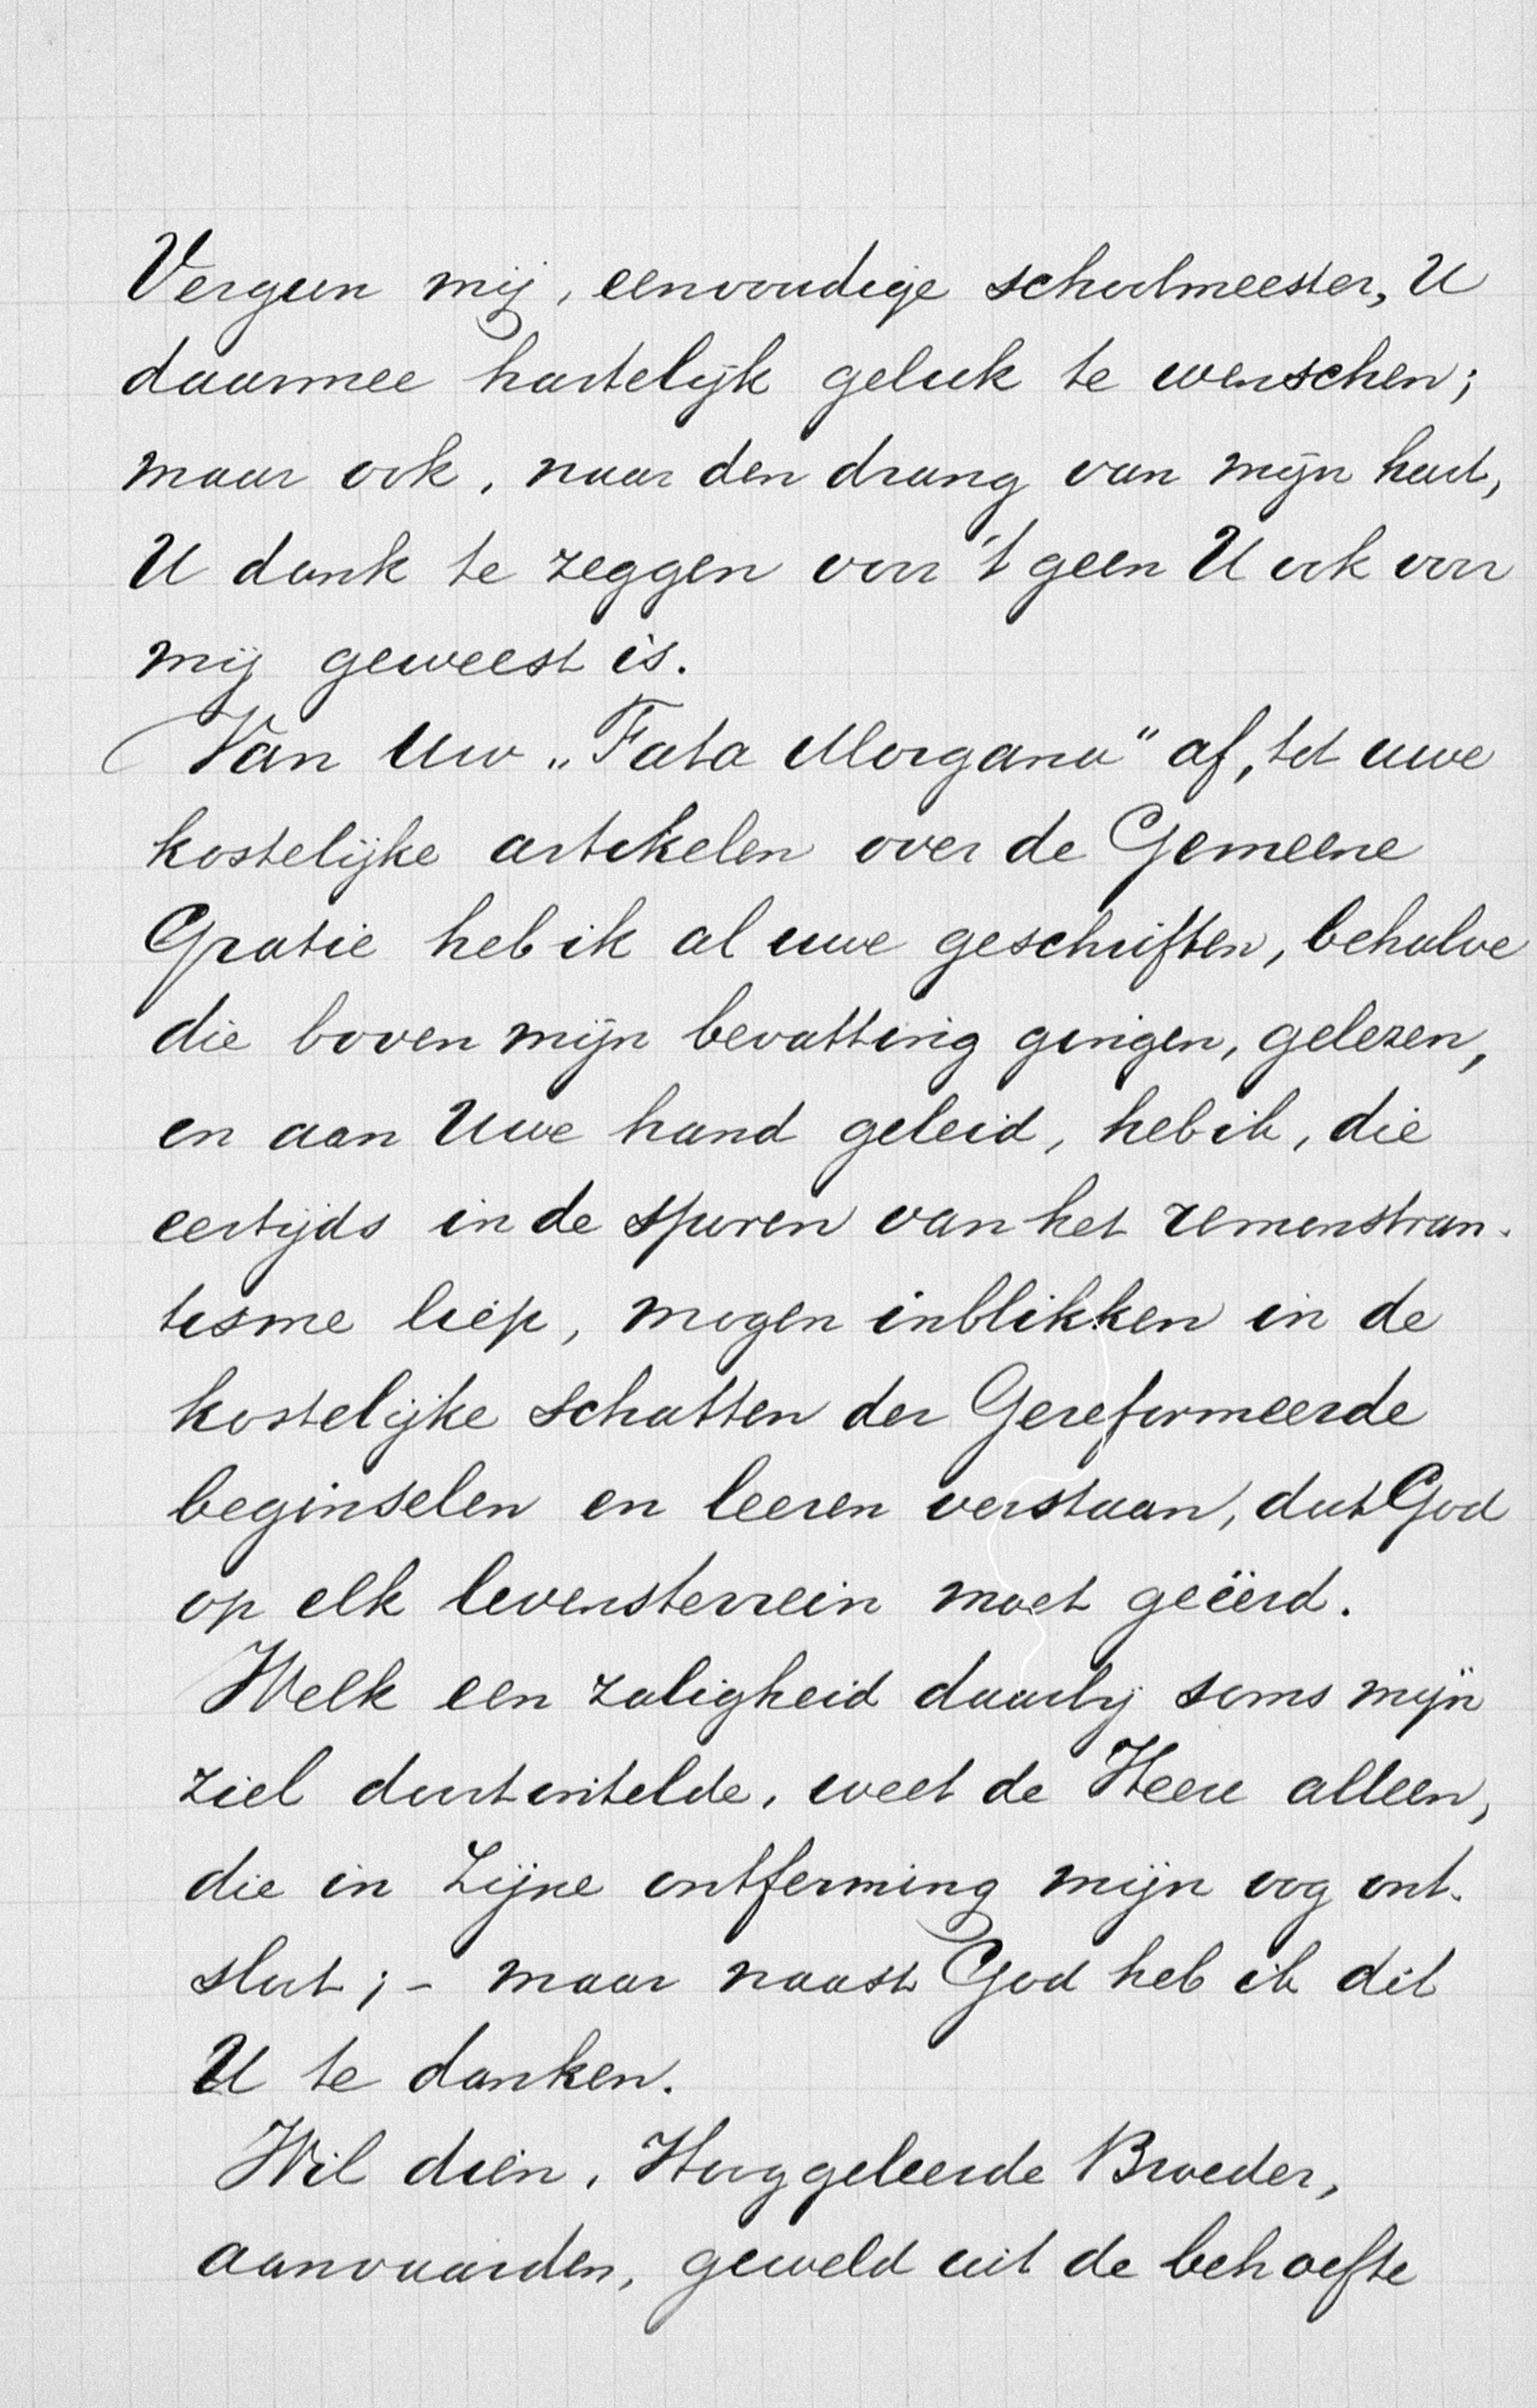 Vergun mij, eenvoudige schoolmeester, U
daarmee hartelijk geluk te wenschen;
maar ook, naar den drang van mijn hart,
U dank te zeggen voor 't geen U ook voor
mij geweest is.
Van Uw „Fata Morgana" af, tot uwe
kostelijke artikelen over de Gemeene
Gratie heb ik al uwe geschriften, behalve
die boven mijn bevatting gingen, gelezen,
en aan Uwe hand geleid, heb ik, die
eertijds in de sporen van het remonstran-
tisme liep, mogen inblikken in de
kostelijke schatten der Gereformeerde
beginselen en leeren verstaan, dat God
op elk levensterrein moet geëerd.
Welk een zaligheid daarbij soms mijn
ziel doortintelde, weet de Heere alleen,
die in Zijne ontferming mijn oog ont-
sloot; - maar naast God heb ik dit
U te danken.
Wil dien, Hooggeleerde Broeder,
aanvaarden, geweld uit de behoefte